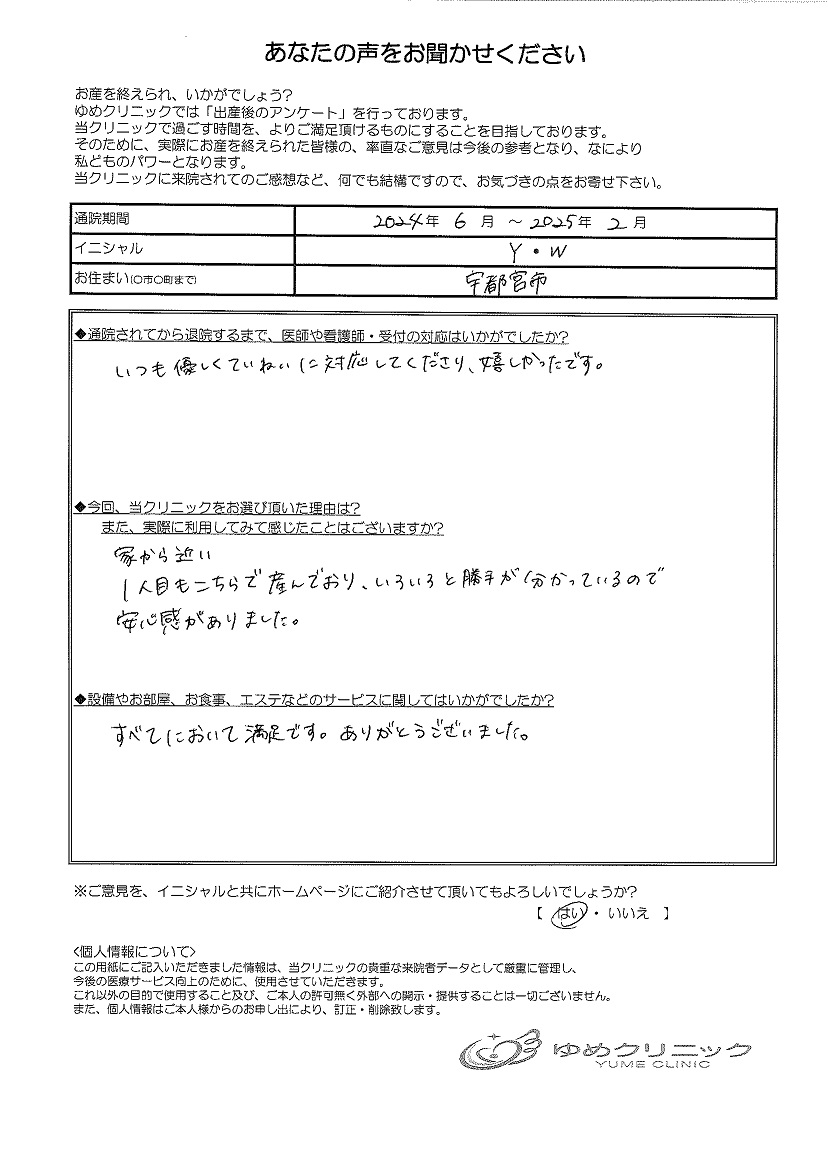 あなたの声をお聞かせください
お産を終えられ、いかがでしょう?
ゆめクリニックでは「出産後のアンケート」を行っております。
当クリニックで過ごす時間を、よりご満足頂けるものにすることを目指しております。
そのために、実際にお産を終えられた皆様の、率直なご意見は今後の参考となり、なにより
私どものパワーとなります。
当クリニックに来院されてのご感想など、何でも結構ですので、お気づきの点をお寄せ下さい。
通院期間 2024年 6 月 ～2025年 2 月
イニシャル Y・W
お住まい(〇市〇町まで) 宇都宮市
◆通院されてから退院するまで、医師や看護師・受付の対応はいかがでしたか?
いつも優しくていねいに対応してくださり、嬉しかったです。
◆今回、当クリニックをお選び頂いた理由は?
また、実際に利用してみて感じたことはございますか?
家から近い
1人目もこちらで産んでおり、いろいろと勝手が分かっているので
安心感がありました。
◆設備やお部屋、お食事、エステなどのサービスに関してはいかがでしたか?
すべてにおいて満足です。ありがとうございました。
※ご意見を、イニシャルと共にホームページにご紹介させて頂いてもよろしいでしょうか?
【 はい ・ いいえ 】
<個人情報について>
この用紙にご記入いただきました情報は、当クリニックの貴重な来院者データとして厳重に管理し、
今後の医療サービス向上のために、使用させていただきます。
これ以外の目的で使用すること及び、ご本人の許可無く外部への開示・提供することは一切ございません。
また、個人情報はご本人様からのお申し出により、訂正・削除致します。
ゆめクリニック
YUME CLINIC